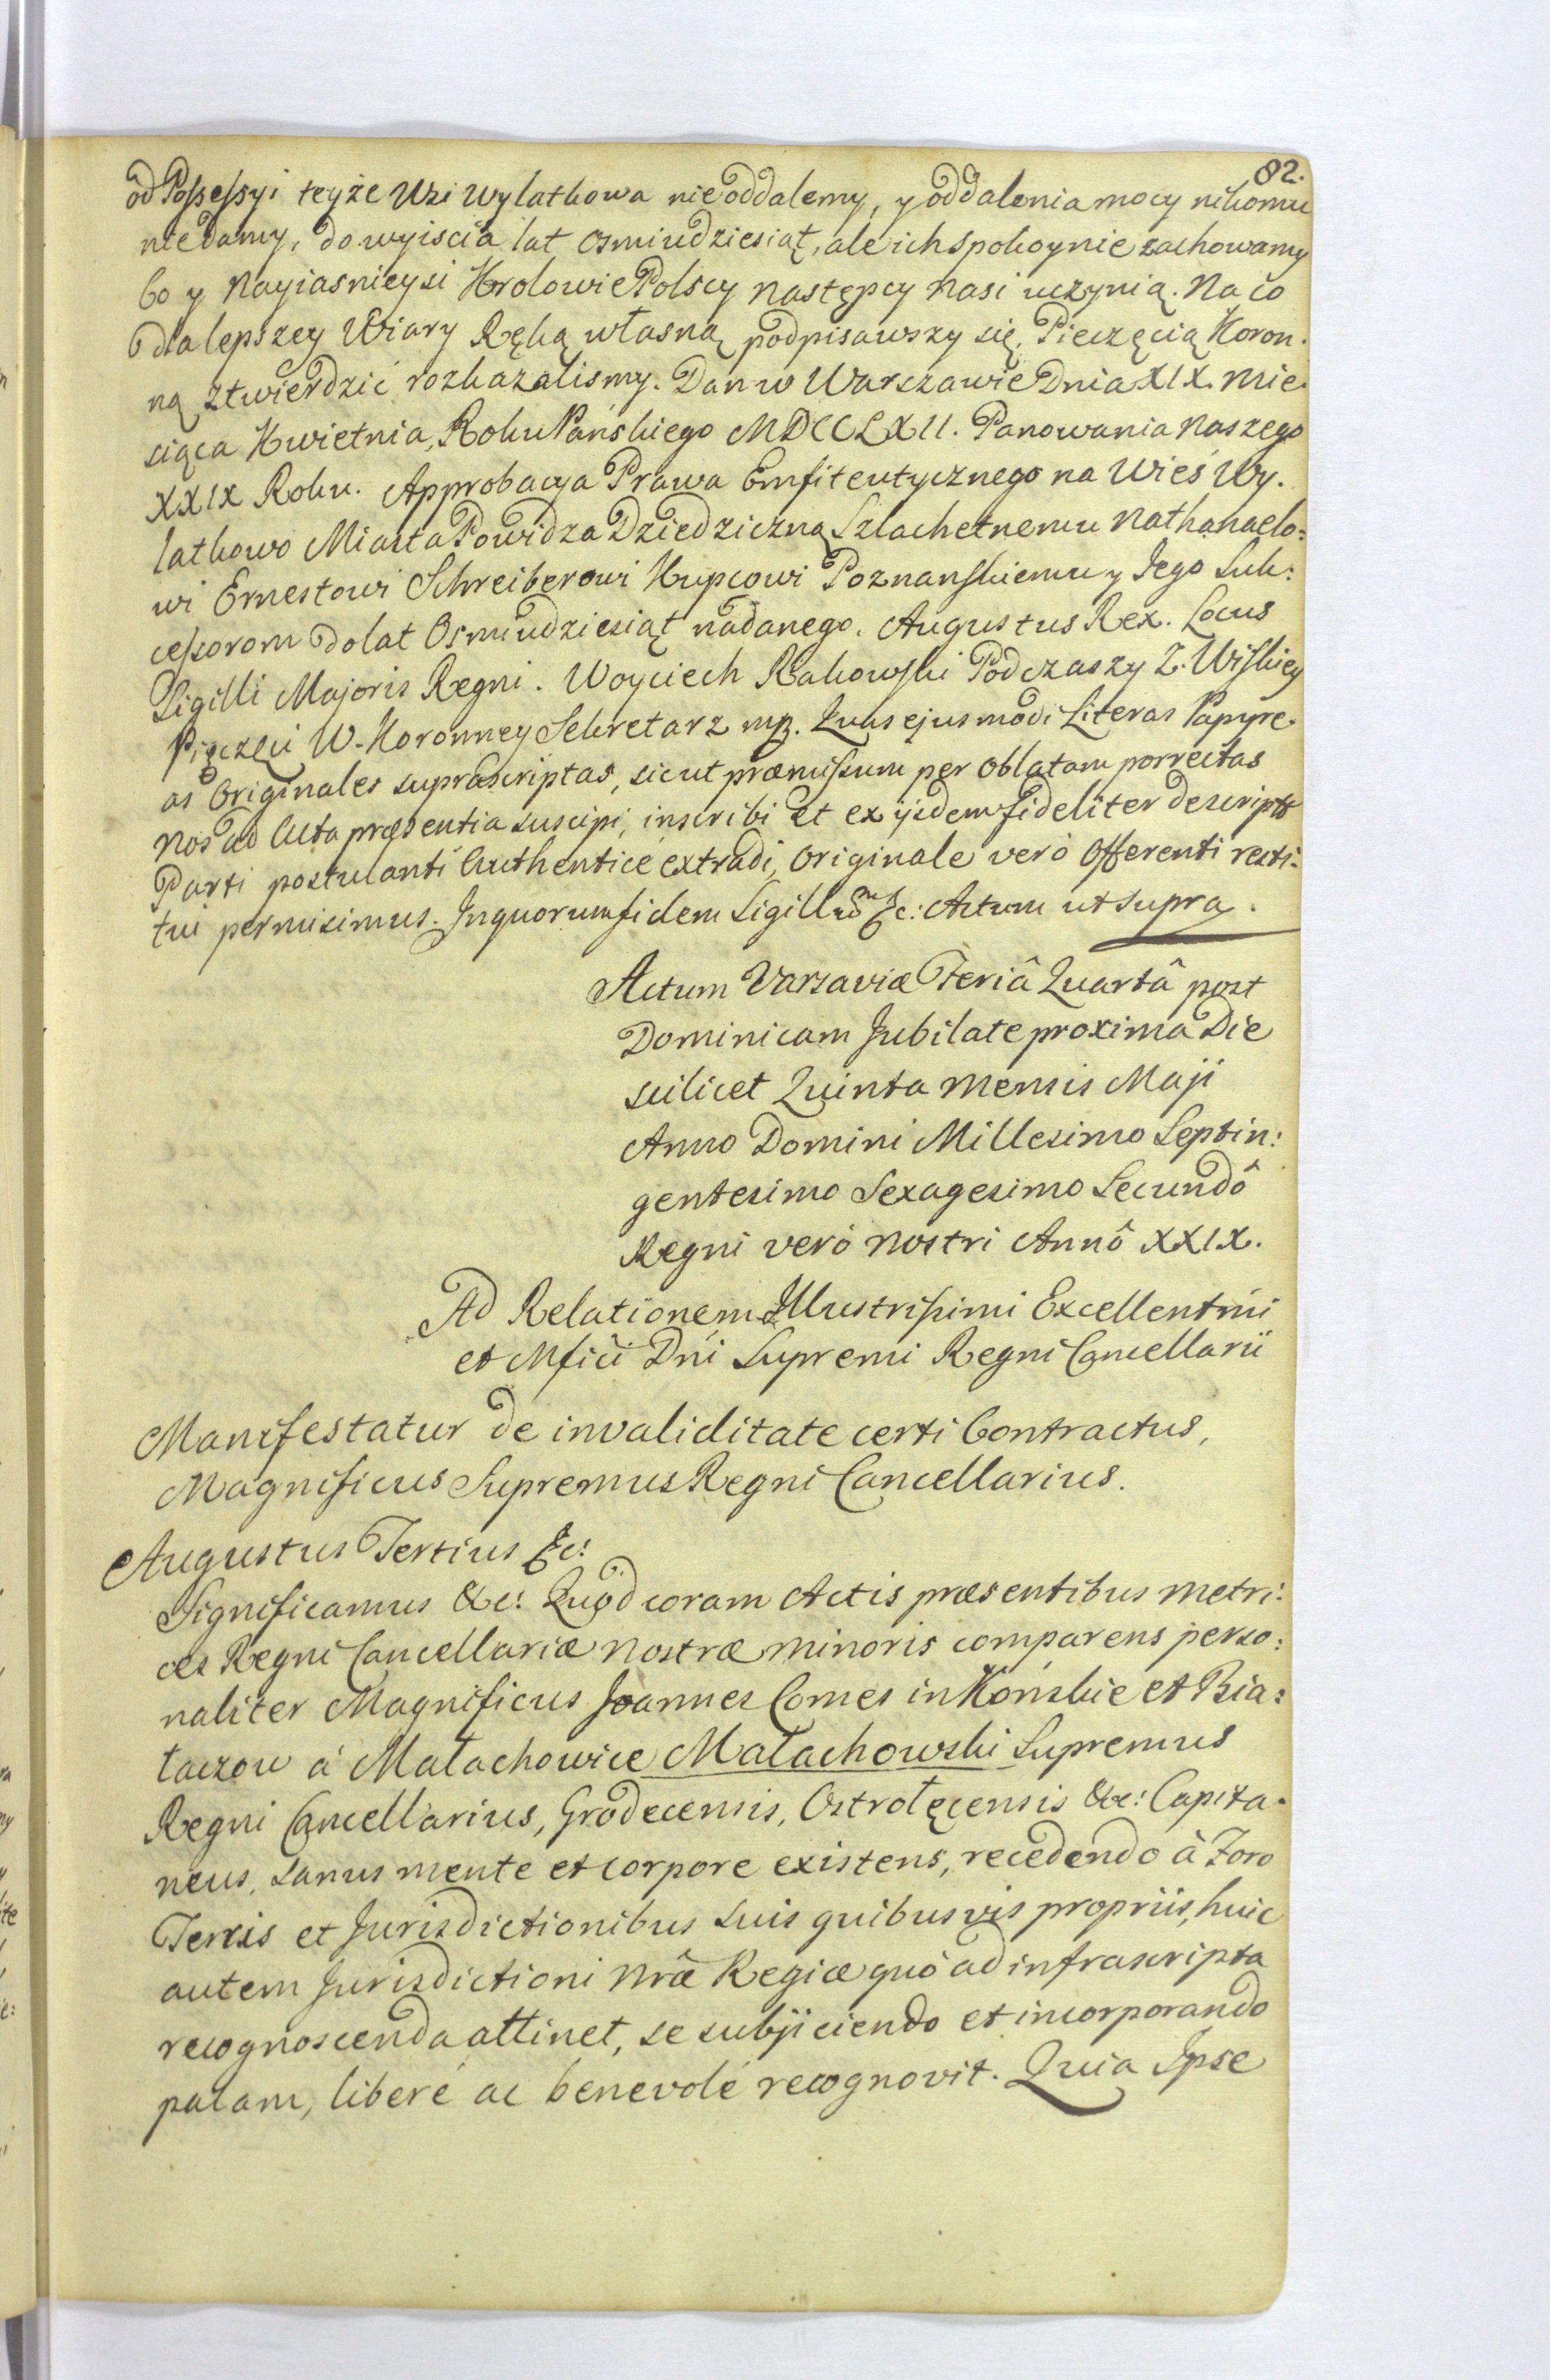 82.
od Possessyi teyże Wsi Wylatkowa nie oddalemy, y oddalenia mocy nikomu
nie damy, do wyiscia lat osmiudziesiąt, ale ich spokoynie zachowamy
bo y Nayiasnieysi Krolowie Polscy Następcy Nasi uczynią. Na co
dla lepszey Wiary Ręką własną podpisawszy się, Pieczęcią Koron.
ną ztwierdzić rozkazalismy. Dan w Warszawie Dnia XIX. Mie.
siąca Kwietnia, Roku Pańskiego MDCCLXII. Panowania Naszego
XXIX Roku. Approbacya Prawa Emfiteutycznego na Wieś Wy.
latkowo Miasta Powidza Dziedziczną Szlachetnemu Nathanaelo:
wi Ernestowi Schreiberowi Kupcowi Poznanskiemu y Jego Suk:
cessorom do lat Osmiudziesiąt nadanego. Augustus Rex. Locus
Sigilli Majoris Regni. Woyciech Rakowski Podczaszy Z. Wiskiey
Pięczęci W. Koronney Sekretarz mp. Quas ejusmodi Literas Papyre.
as Originales suprascriptas, sicut præmissum per Oblatam porrectas
Nos ad Acta præsentia suscipi, inscribi et ex ijsdem fideliter descriptas
Parti postulanti Authenticé extradi, Originale veró Offerenti resti:
tui permisimus. In quorum fidem Sigillum &c: Actum ut supra.
Actum Varsaviæ Feriâ Quartâ post
Dominicam Jubilate proxima Die
scilicet Quinta Mensis Maji
Anno Domini Millesimo Septin:
gentesimo Sexagesimo Secundô
Regni veró Nostri Annô XXIX.
Ad Relationem Illustrissimi Excellentmi
et Mfici Dni Supremi Regni Cancellarii
Manifestatur de invaliditate certi Contractus,
Magnificus Supremus Regni Cancellarius.
Augustus Tertius &c:
Significamus &c: Quód coram Actis præsentibus Metri:
ces Regni Cancellariæ Nostræ Minoris comparens perso:
naliter Magnificus Joannes Comes in Końskie et Bia:
łaczow á Małachowice Małachowski Supremus
Regni Cancellarius, Grodecensis, Ostrołęcensis &c: Capita.
neus, sanus mente et corpore existens, recedendo à Foro
Terris et Jurisdictionibus suis quibusvis propriis, huic
autem Jurisdictioni Nrâ Regiæ quò ad infrascripta
recognoscenda attinet, se subjiciendo et incorporando
palam, liberé ac benevolé recognovit. Quia Ipse